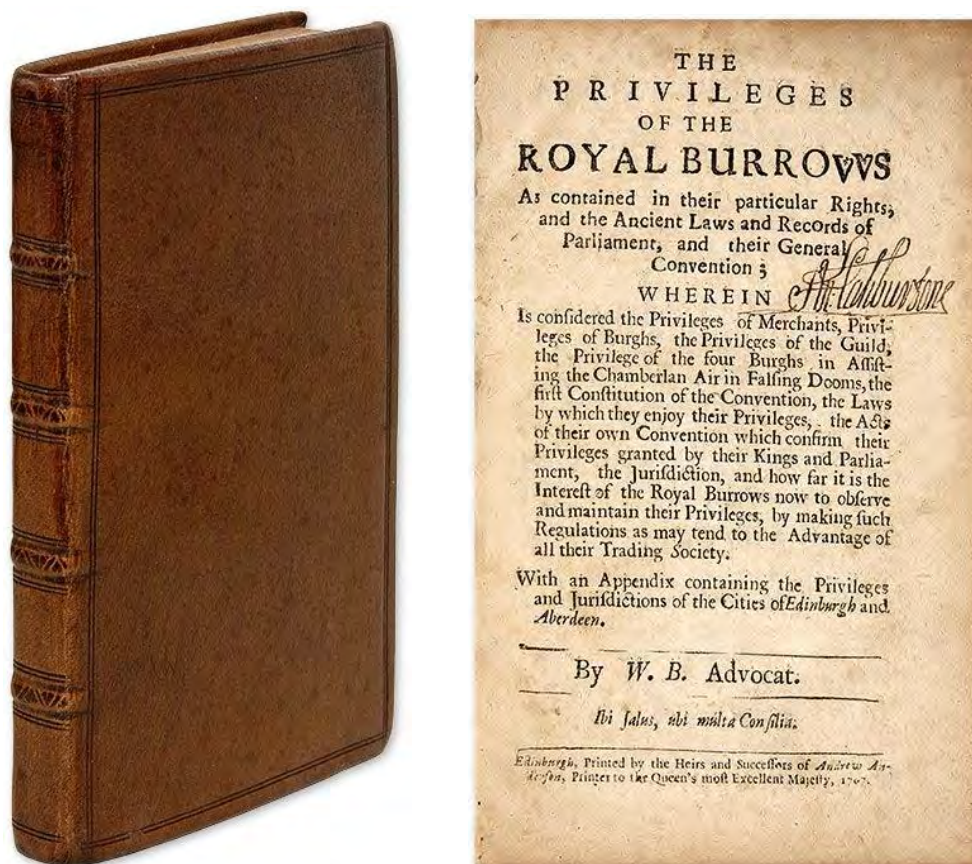 THE
PRIVILEGES
OF THE
ROYAL BURROVVS
As contained in their particular Rights;
and the Ancient Laws and Records of
Parliament, and their General
Convention ;
WHEREIN
Is conſidered the Privileges of Merchants, Privi-
leges of Burghs, the Privileges of the Guild,
the Privilege of the four Burghs in Aſſiſt-
ing the Chamberlan Air in Falſing Dooms, the
firſt Conſtitution of the Convention, the Laws
by which they enjoy their Privileges, the Acts
of their own Convention which confirm their
Privileges granted by their Kings and Parlia-
ment, the Juriſdiction, and how far it is the
Intereſt of the Royal Burrows now to obſerve
and maintain their Privileges, by making ſuch
Regulations as may tend to the Advantage of
all their Trading Society.
With an Appendix containing the Privileges
and Juriſdictions of the Cities of Edinburgh and
Aberdeen.
By W. B. Advocat.
Ibi ſalus, ubi multa Conſilia.
Edinburgh, Printed by the Heirs and Succeſſors of Andrew An-
derſon, Printer to the Queen's moſt Excellent Majeſty, 1707.